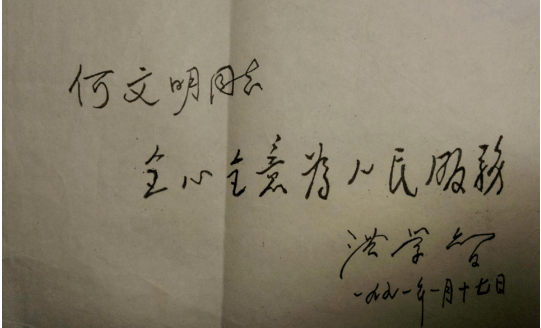 何文明同志
全心全意为人民服務
洪学智
一九九一年一月十七日